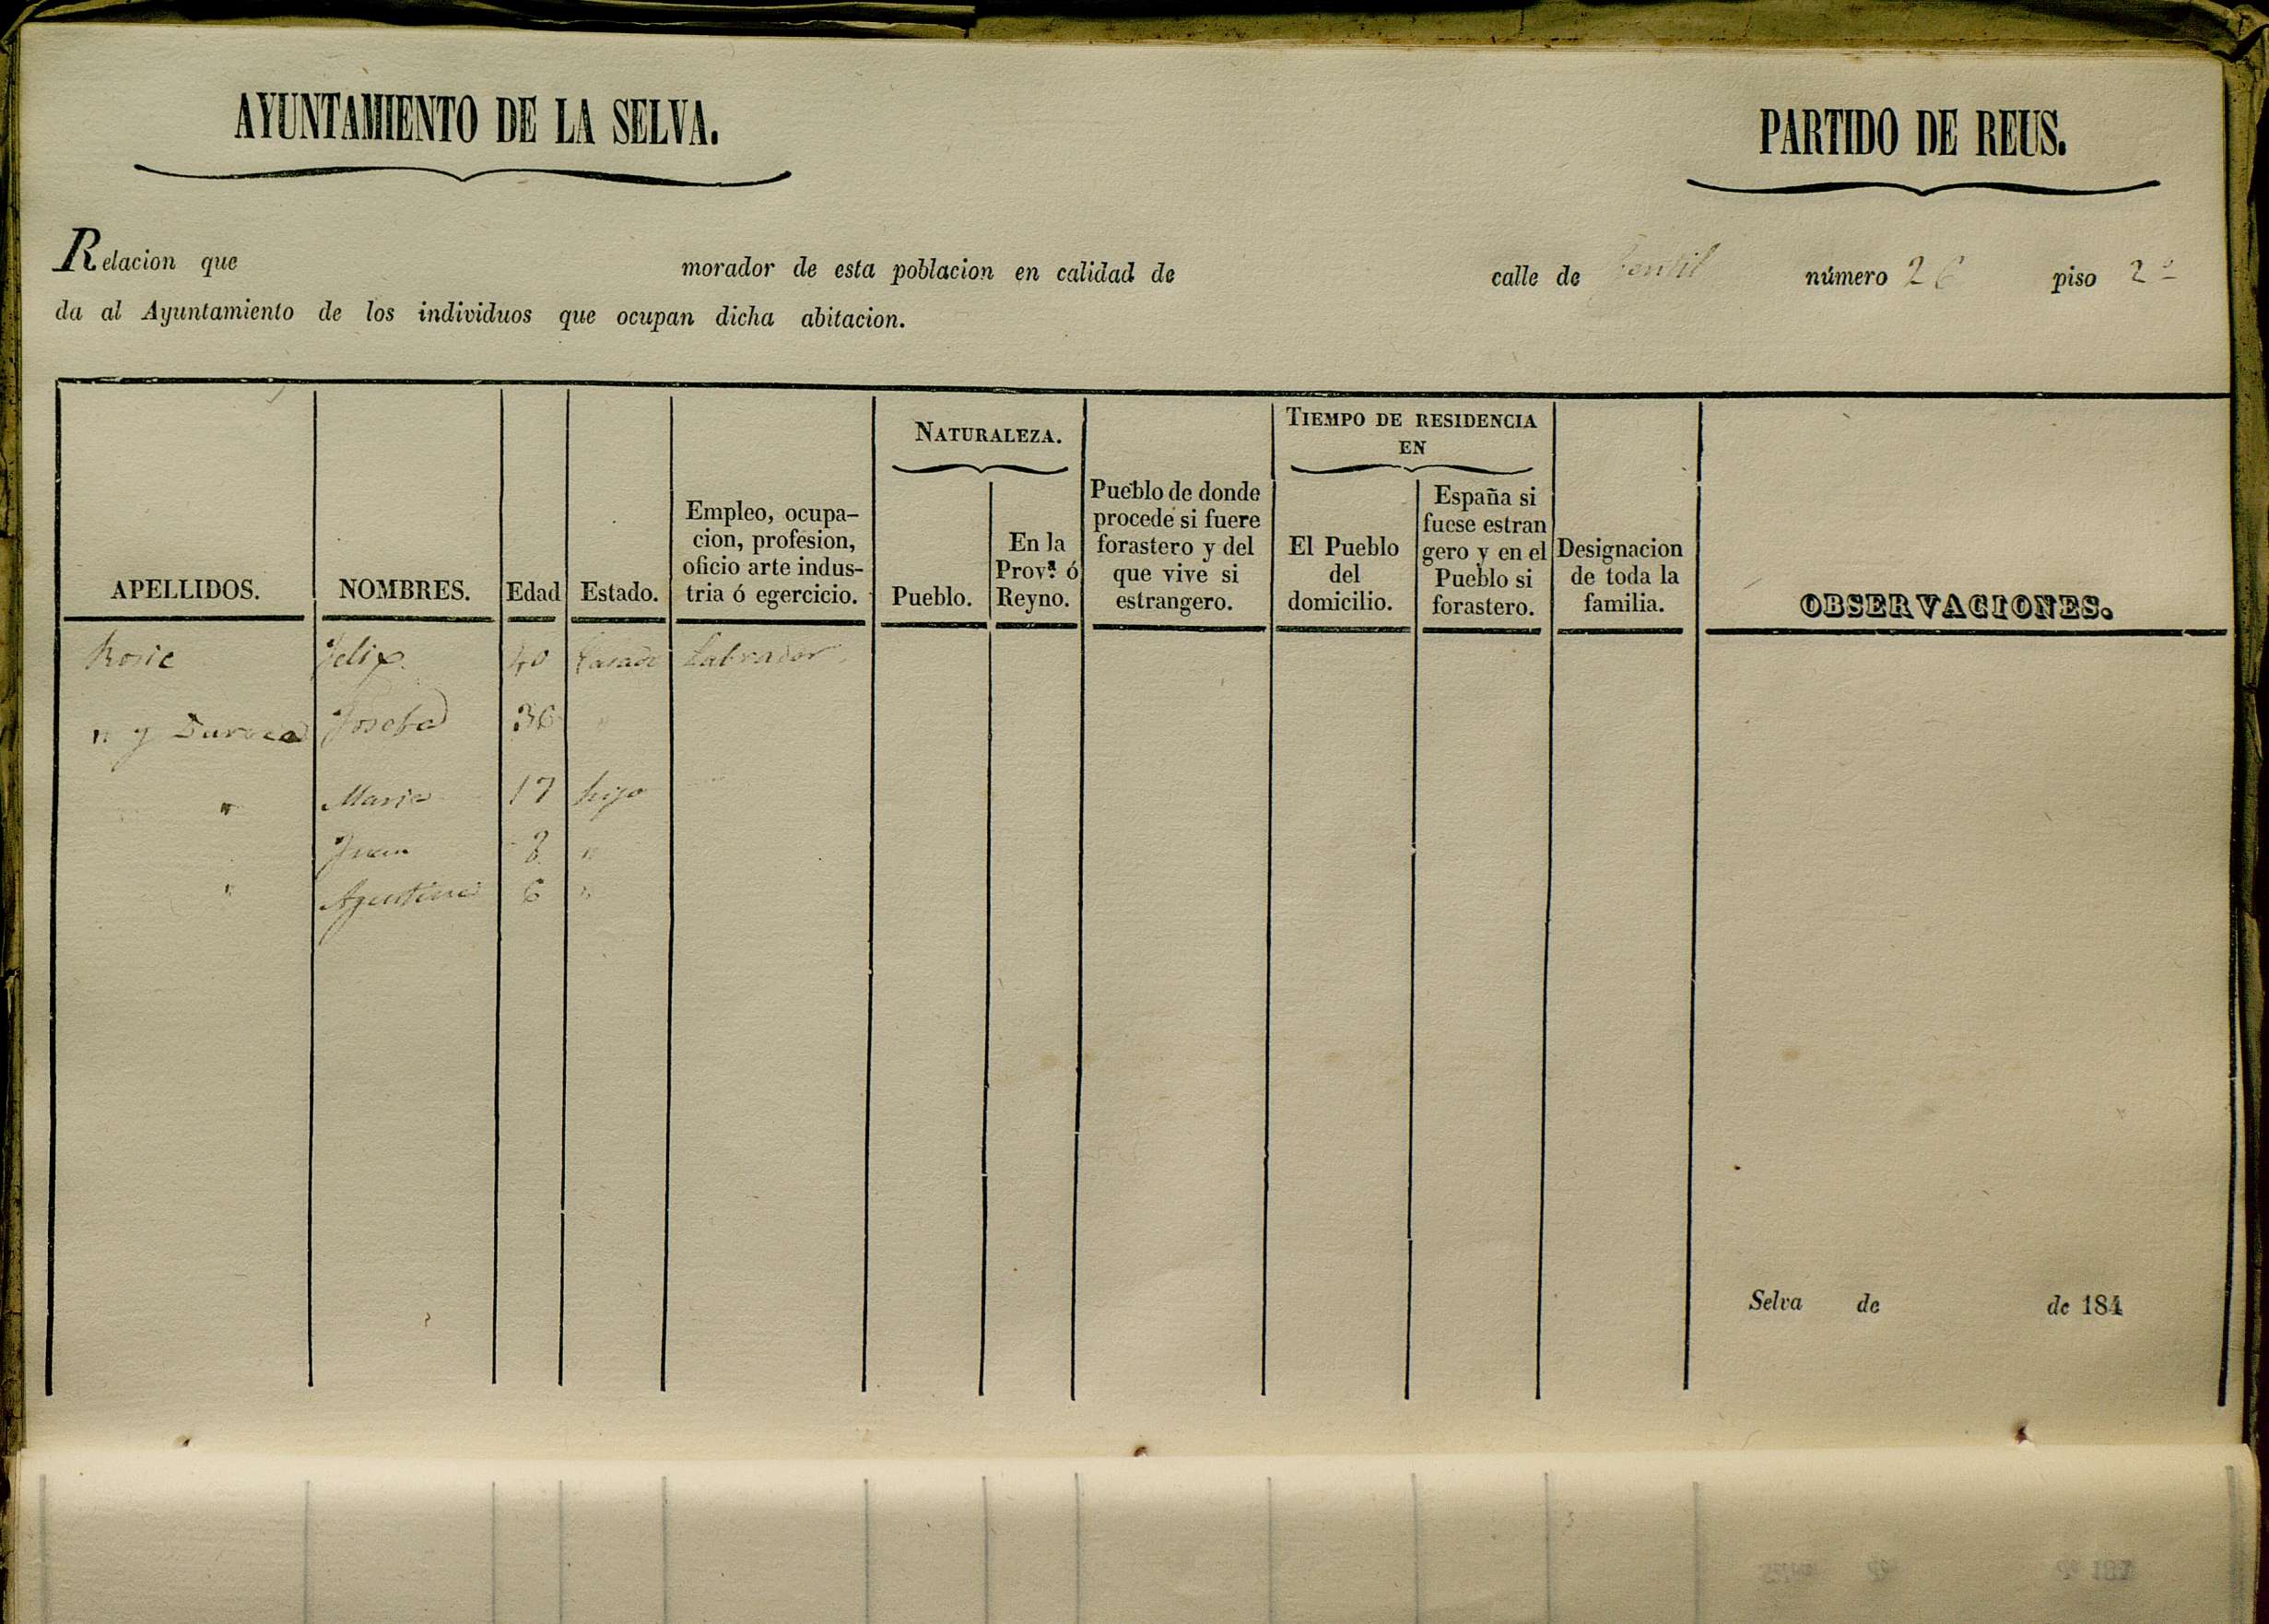 AYUNTAMIENTO DE LA SELVA.
PARTIDO DE REUS.
Relacion que morador de esta poblacion en calidad de calle de número 26 piso 2º
da al Ayuntamiento de los individuos que ocupan dicha abitacion.
APELLIDOS.
NOMBRES.
Edad
Estado.
Empleo, ocupa-
cion, profesion,
oficio arte indus-
tria ó egercicio.
NATURALEZA.
Pueblo.
En la
Prov.ª ó
Reyno.
Pueblo de donde
procede si fuere
forastero y del
que vive si
estrangero.
TIEMPO DE RESIDENCIA
EN
El Pueblo
del
domicilio.
España si
fuese estran
gero y en el
Pueblo si
forastero.
Designacion
de toda la
familia.
OBSERVACIONES.
Felix 40 Casado Labrador
" y Josefa 36 "
" Maria 17 hija
Juan 8 "
" Agustina 6 "
Selva de de 184